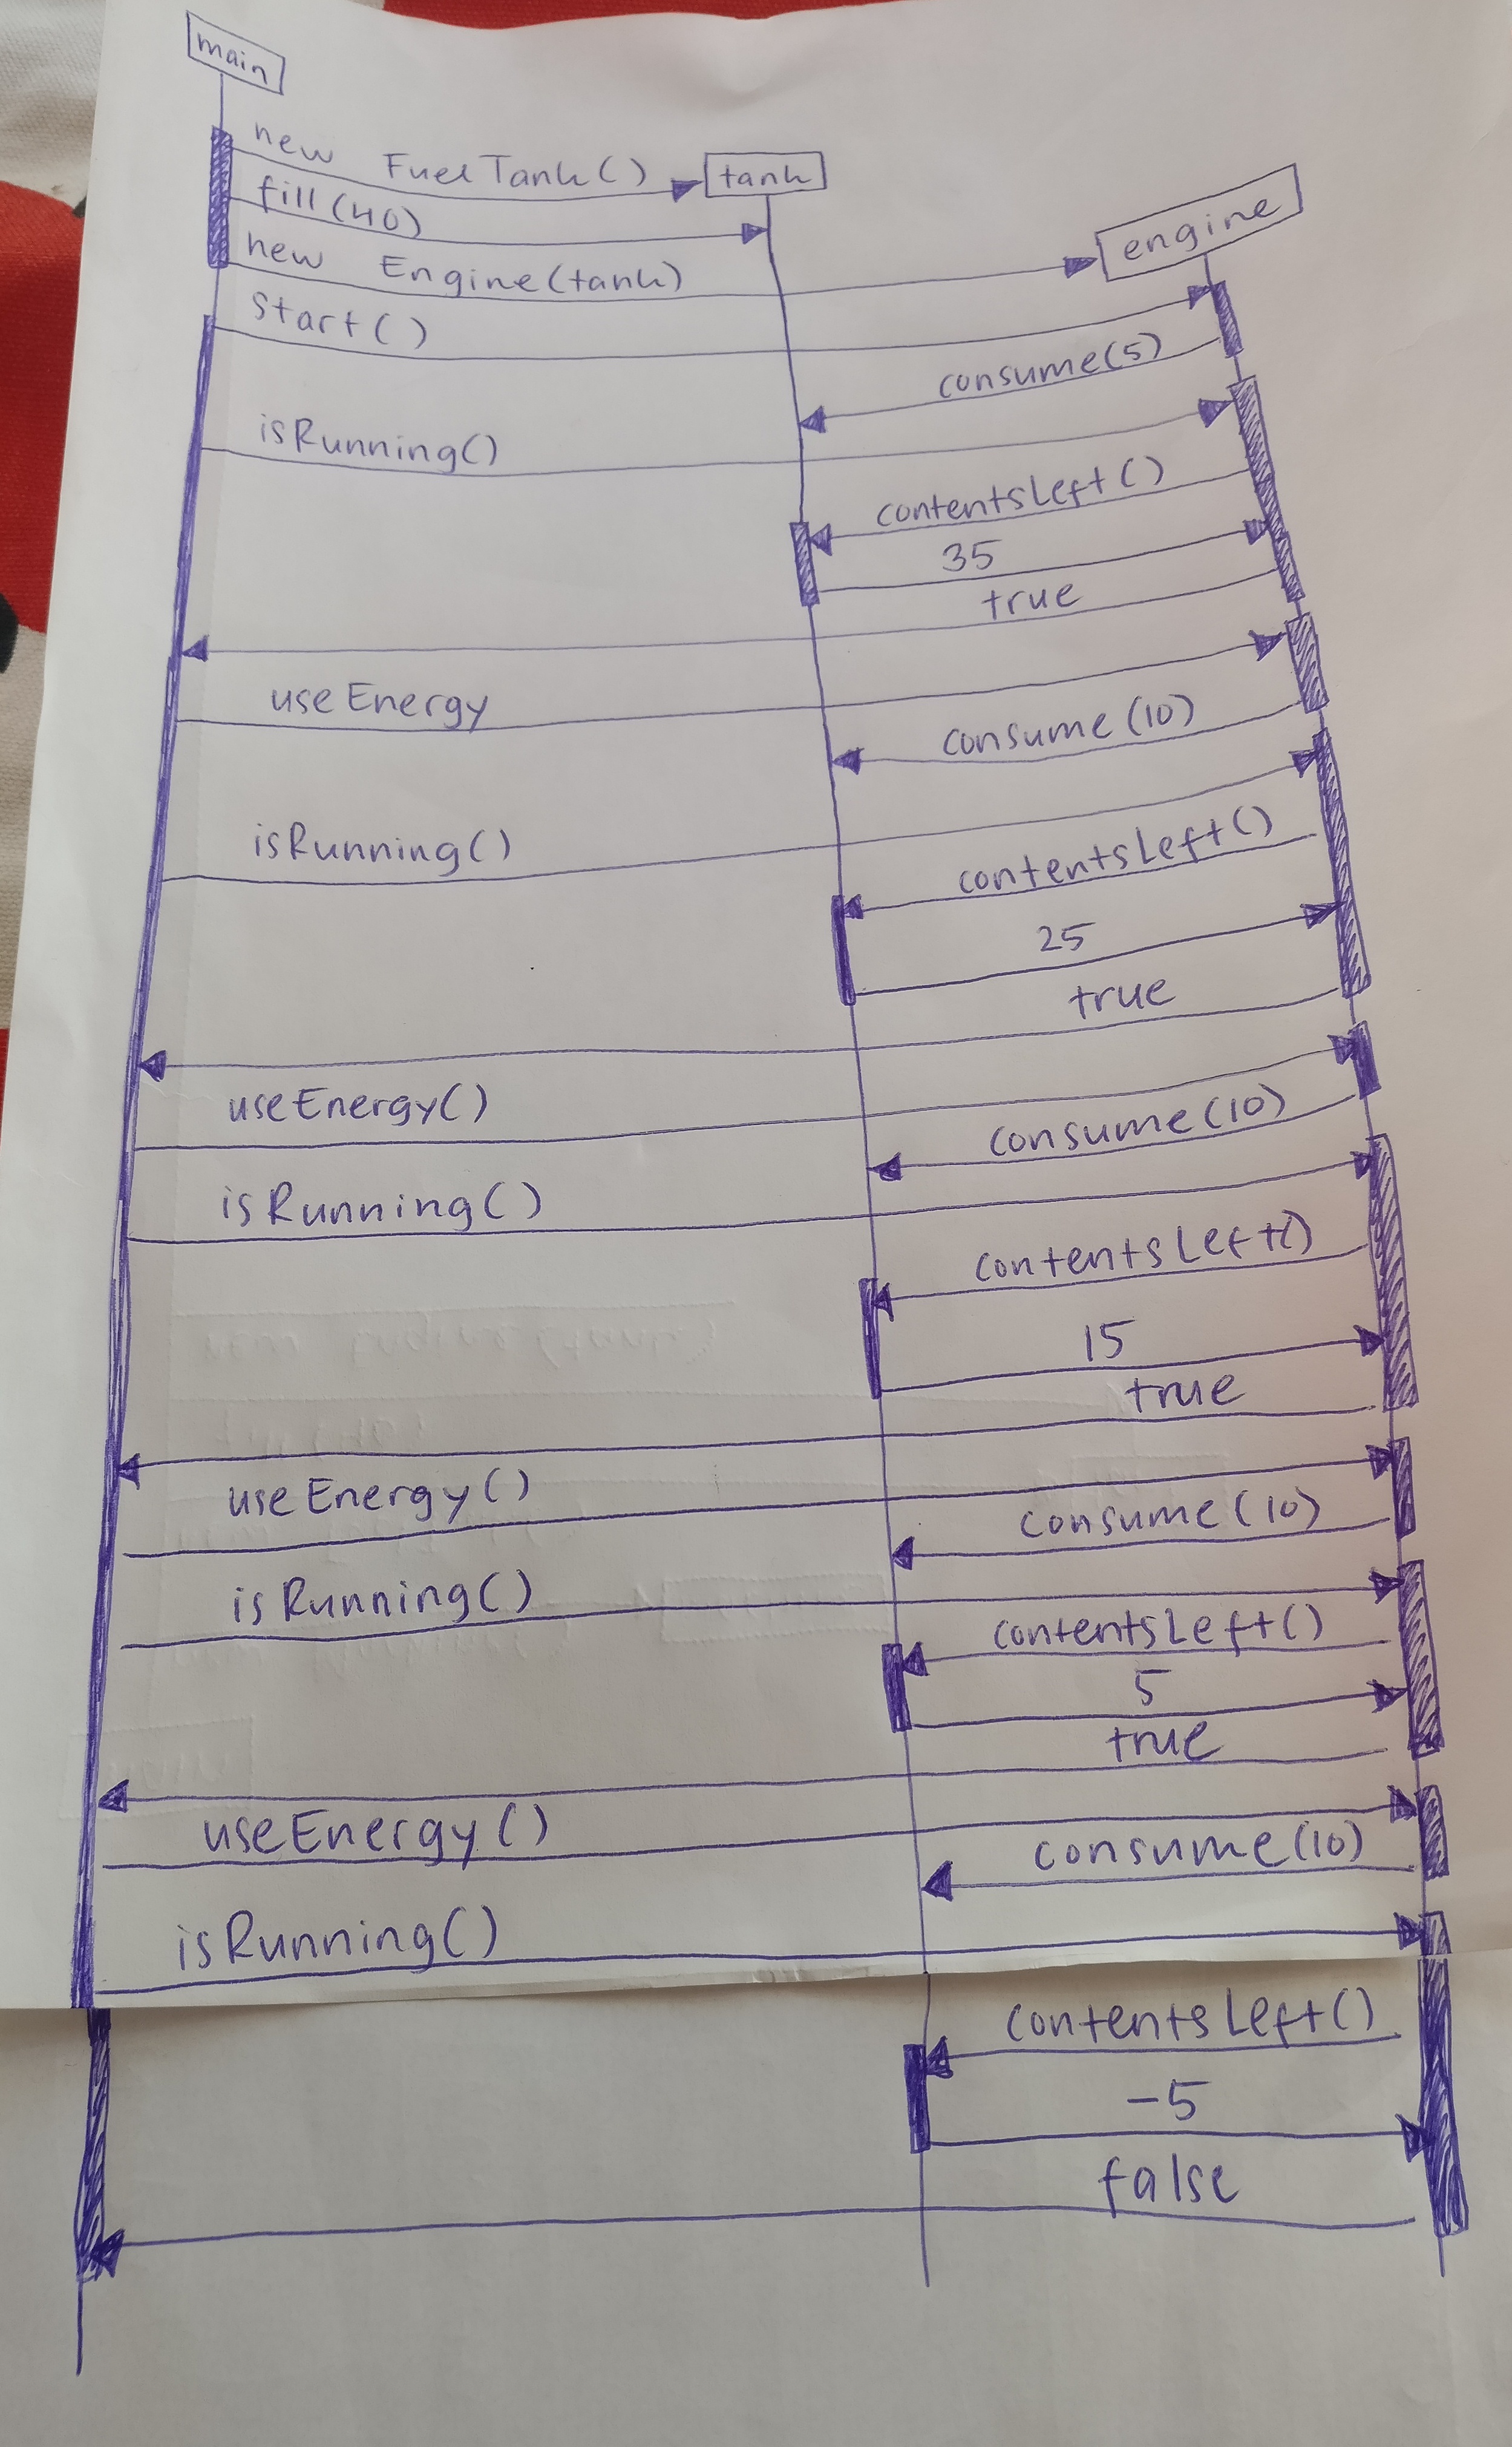 main
new FuelTank()
tank
fill(40)
engine
new Engine(tank)
start()
consume(5)
isRunning()
contentsLeft()
35
true
useEnergy
consume(10)
isRunning()
contentsLeft()
25
true
useEnergy()
consume(10)
isRunning()
contentsLeft()
15
true
useEnergy()
consume(10)
isRunning()
contentsLeft()
5
true
useEnergy()
consume(10)
isRunning()
contentsLeft()
-5
false